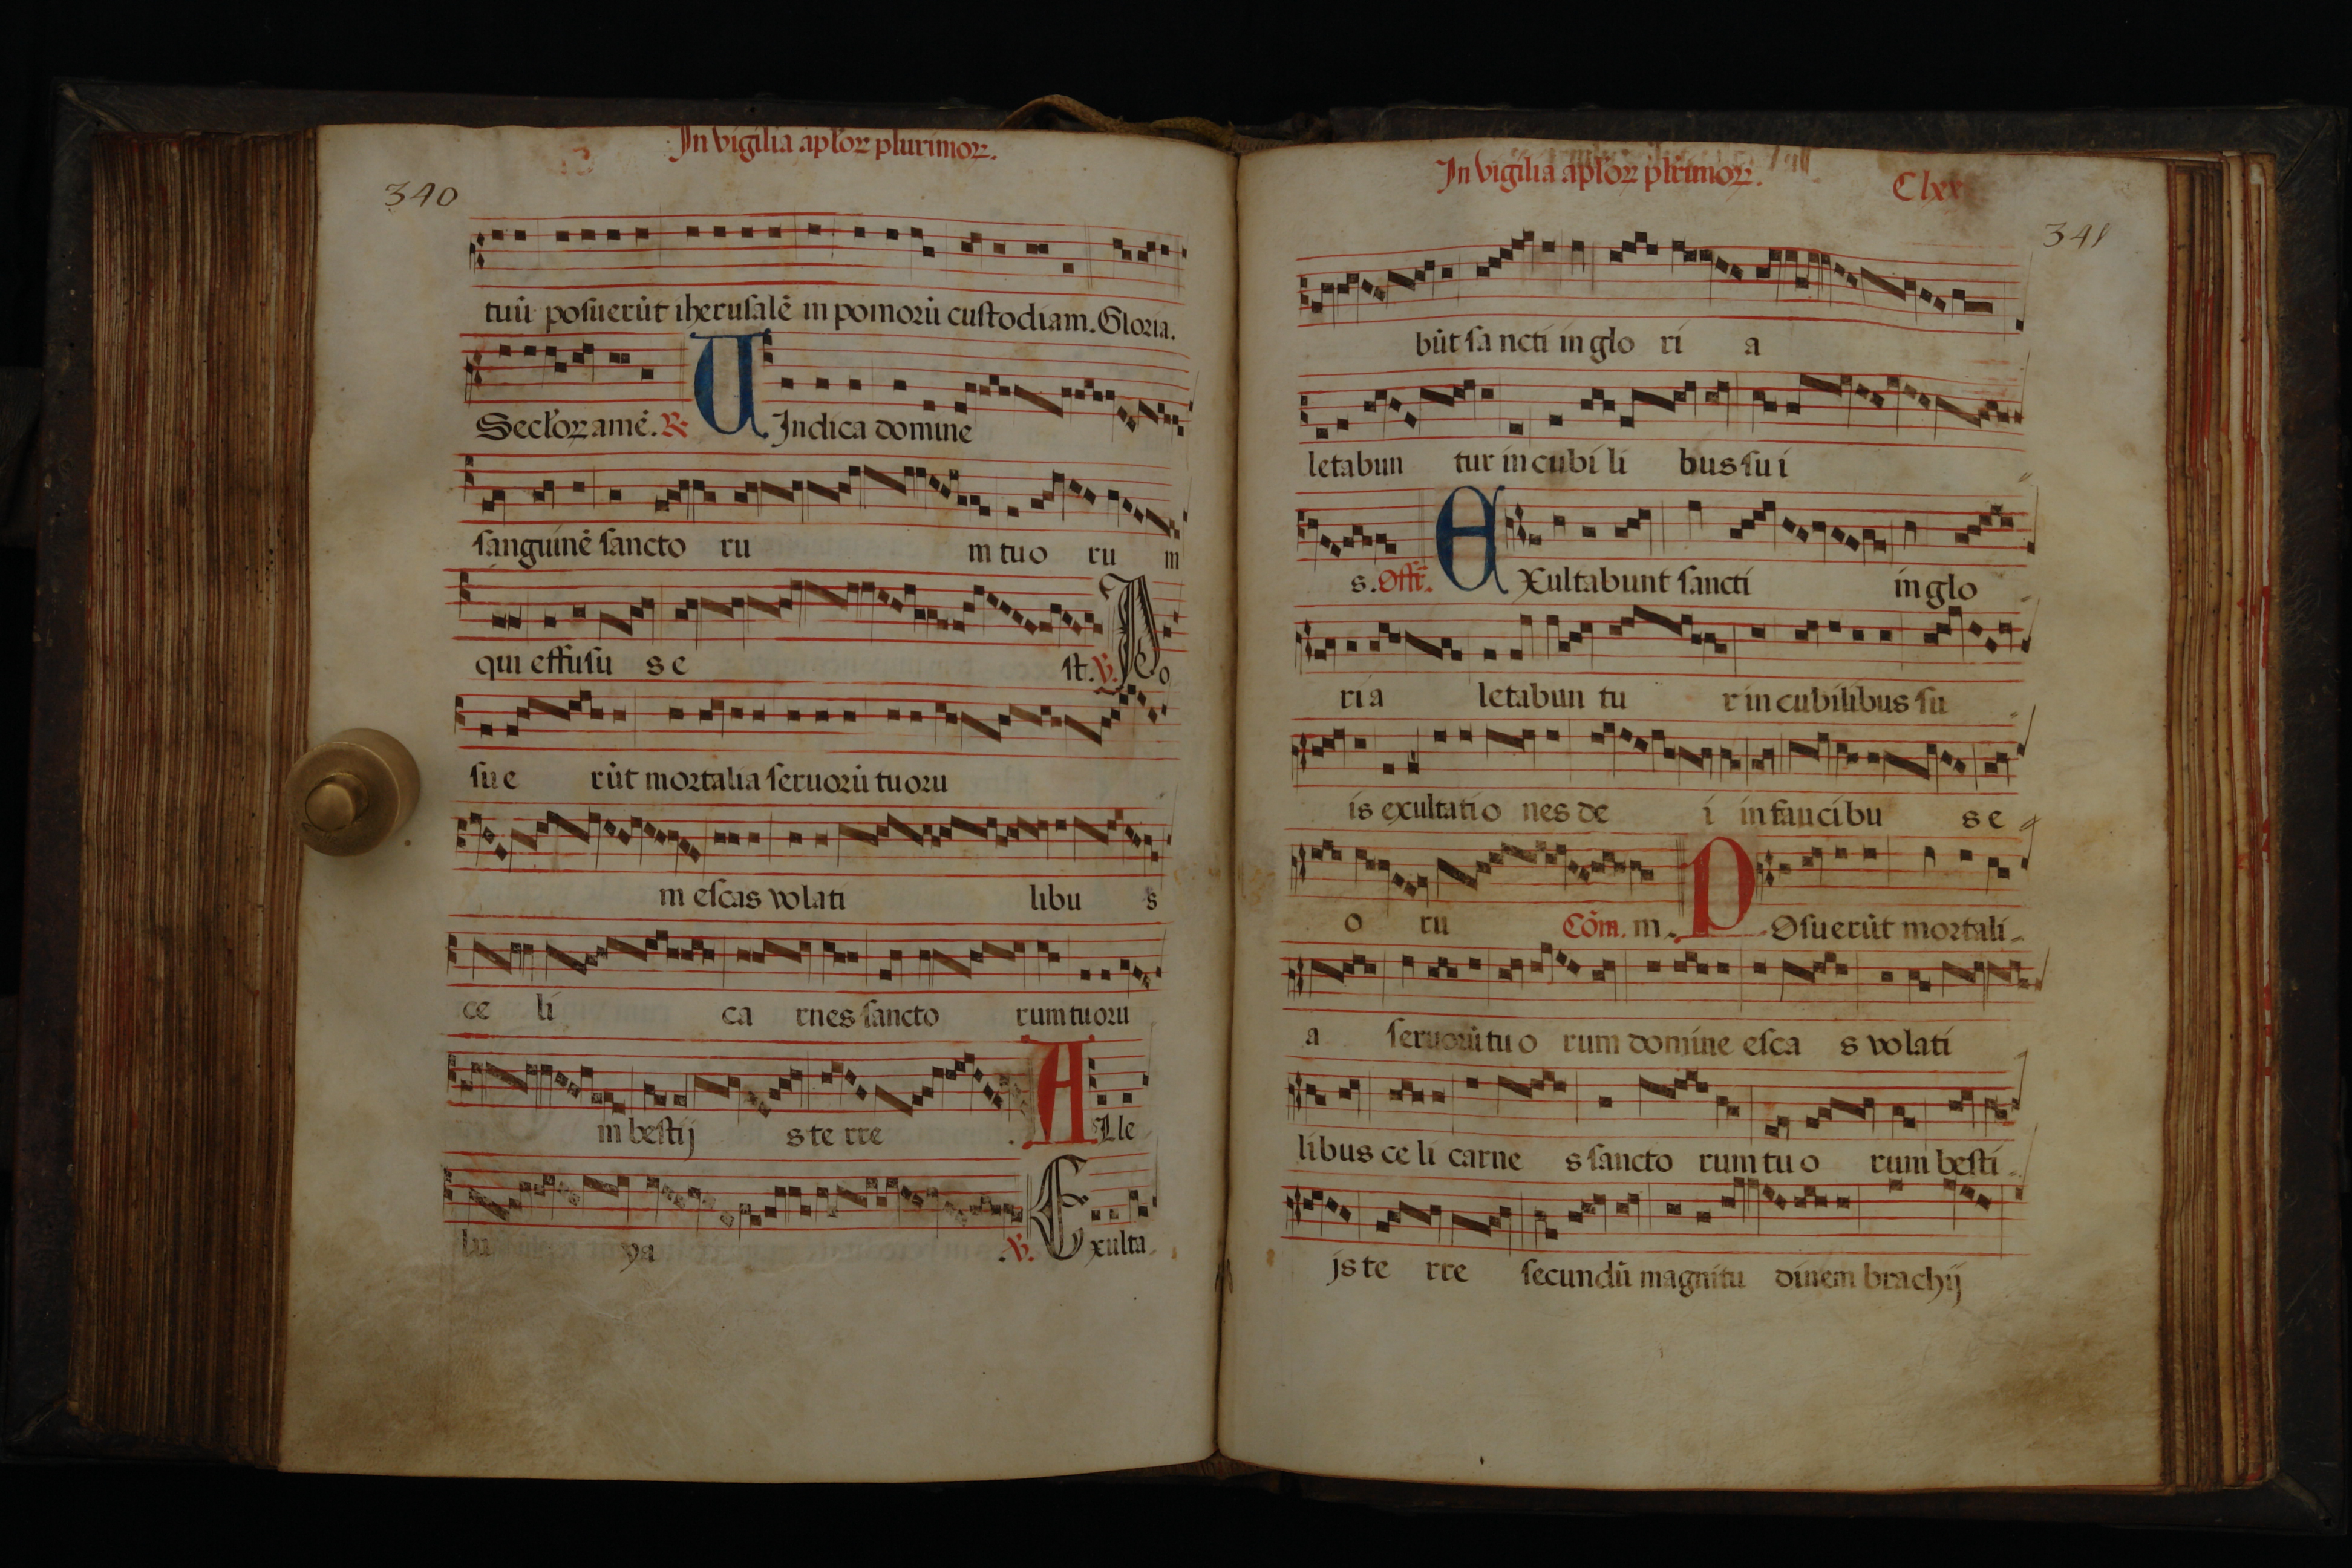 In vigilia apl'oꝝ plurimoꝝ.
340
tuū posuerūt iherusalē in pomorū custodiam. Gloria.
Secl'oꝝ amē. ℞ UIndica domine
sanguinē sancto ru m tuo ru m
qui effusu s e st. ℣. Po
sue rūt mortalia seruorū tuoru
m escas volati libu s
ce li ca rnes sancto rum tuoru
m bestij s te rre . ALle
lu ya . ℣. Exulta
In vigilia apl'oꝝ pl'rimoꝝ.
Clxx
341
būt sa ncti in glo ri a
letabun tur in cubi li bus su i
s. Offr̄. EXultabunt sancti in glo
ri a letabun tu r in cubilibus su
is exultatio nes de i in faucibu s e
o ru Cōm. m. POsuerūt mortali
a seruorū tu o rum domine esca s volati
libus ce li carne s sancto rum tu o rum besti
js te rre secundū magnitu dinem brachij